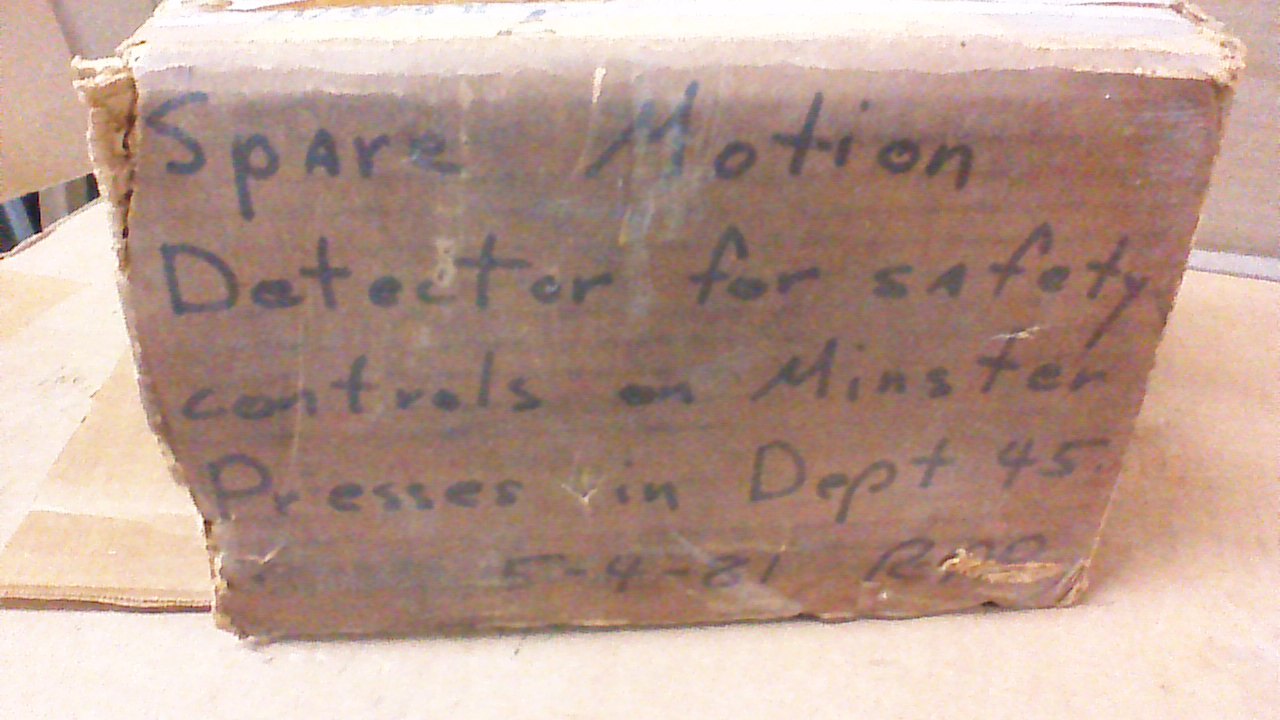 Spare Motion
Detector for safety
controls on Minster
Presses in Dept 45.
5-4-81